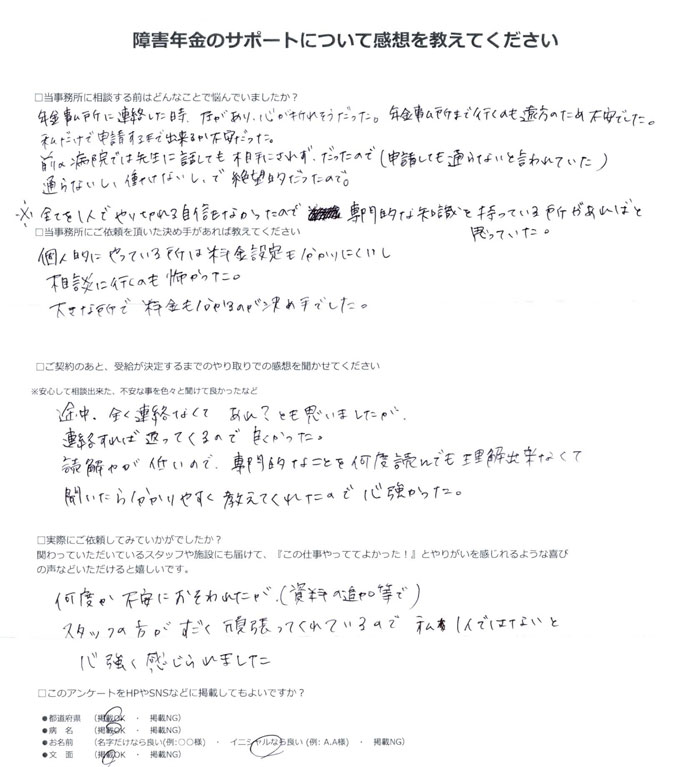 障害年金のサポートについて感想を教えてください
□当事務所に相談する前はどんなことで悩んでいましたか？
年金事ム所に連絡した時、圧があり、心が折れそうだった。年金事ム所まで行くのも遠方のため不安でした。
私だけで申請するまで出来るか不安だった。
前の病院では先生に話しても相手にされず、だったので(申請しても通らないと言われていた)
通らないし、働けないし、で絶望的だったので。
※全てを1人でやりきれる自信もなかったので 専門的な知識を持っている所があればと
思っていた。
□当事務所にご依頼を頂いた決め手があれば教えてください
個人的にやっている所は料金設定も分かりにくいし
相談に行くのも怖かった。
大きな所で料金も分かるのが決め手でした。
□ご契約のあと、受給が決定するまでのやり取りでの感想を聞かせてください
※安心して相談出来た、不安な事を色々と聞けて良かったなど
途中、全く連絡なくて あれ？とも思いましたが、
連絡すれば返ってくるので良かった。
読解力が低いので、専門的なことを何度読んでも理解出来なくて
聞いたら分かりやすく教えてくれたので心強かった。
□実際にご依頼してみていかがでしたか？
関わっていただいているスタッフや施設にも届けて、『この仕事やっててよかった！』とやりがいを感じれるような喜び
の声などいただけると嬉しいです。
何度か不安におそわれたが、(資料の追加等で)
スタッフの方がすごく頑張ってくれているので 私も1人ではないと
心強く感じられました
□このアンケートをHPやSNSなどに掲載してもよいですか？
●都道府県 （掲載OK ・ 掲載NG）
●病 名 （掲載OK ・ 掲載NG）
●お名前 （名字だけなら良い(例:○○様) ・ イニシャルなら良い (例: A.A様) ・ 掲載NG）
●文 面 （掲載OK ・ 掲載NG）